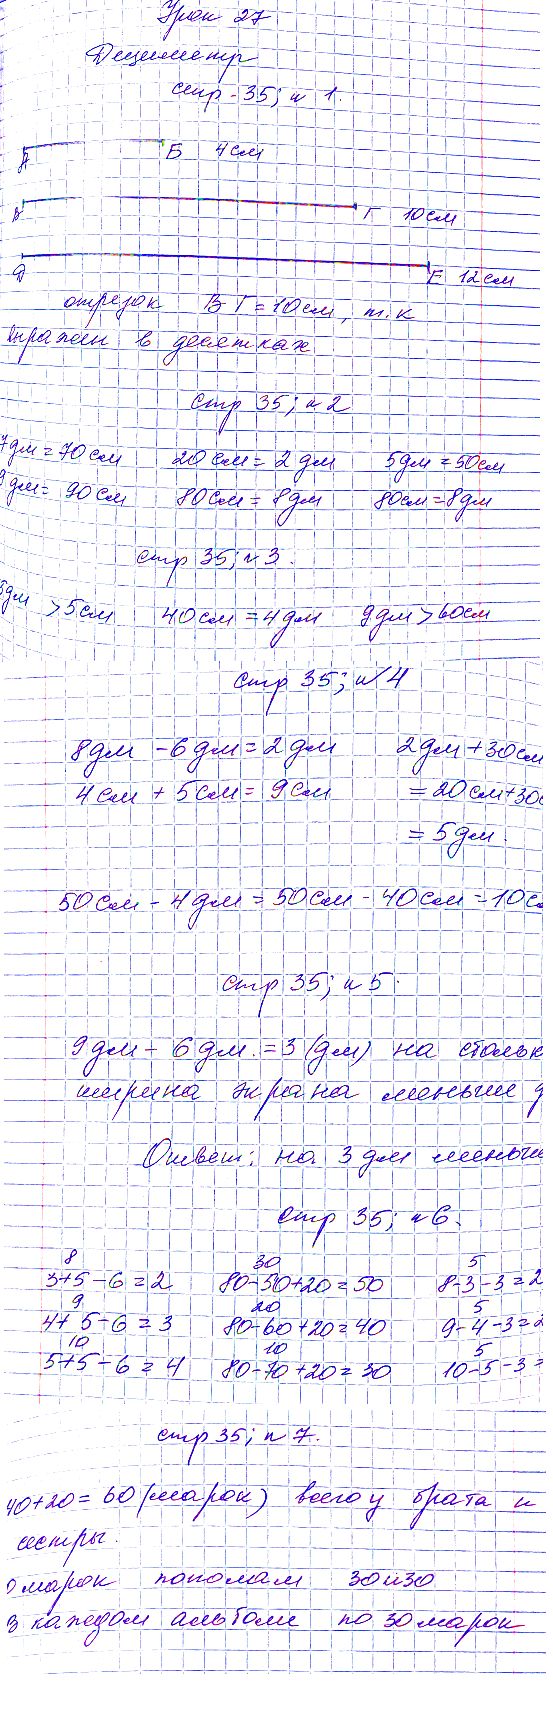 Урок 27
Дециметр
стр. 35; н 1.
А Б 4 см
В Г 10 см
Д Е 12 см
отрезок ВГ = 10 см, т.к
выражен в десятках
стр 35; н 2
7 дм = 70 см 20 см = 2 дм 5 дм = 50 см
9 дм = 90 см 80 см = 8 дм 80 см = 8 дм
стр 35; н 3.
5 дм > 5 см 40 см = 4 дм 9 дм > 60 см
стр 35; н 4
8 дм - 6 дм = 2 дм 2 дм + 30 см
4 см + 5 см = 9 см = 20 см + 30 с
= 5 дм.
50 см - 4 дм = 50 см - 40 см = 10 см
стр 35; н 5.
9 дм - 6 дм. = 3 (дм) на стольк
ширина экрана меньше д
Ответ: на 3 дм меньш
стр 35; н 6.
8 30 5
3+5-6=2 80-50+20=50 8-3-3=2
9 20 5
4+5-6=3 80-60+20=40 9-4-3=2
10 10 5
5+5-6=4 80-70+20=30 10-5-3=
стр 35; н 7.
40+20=60 (марок) всего у брата и
сестры.
0 марок пополам 30 и 30
в каждом альбоме по 30 марок